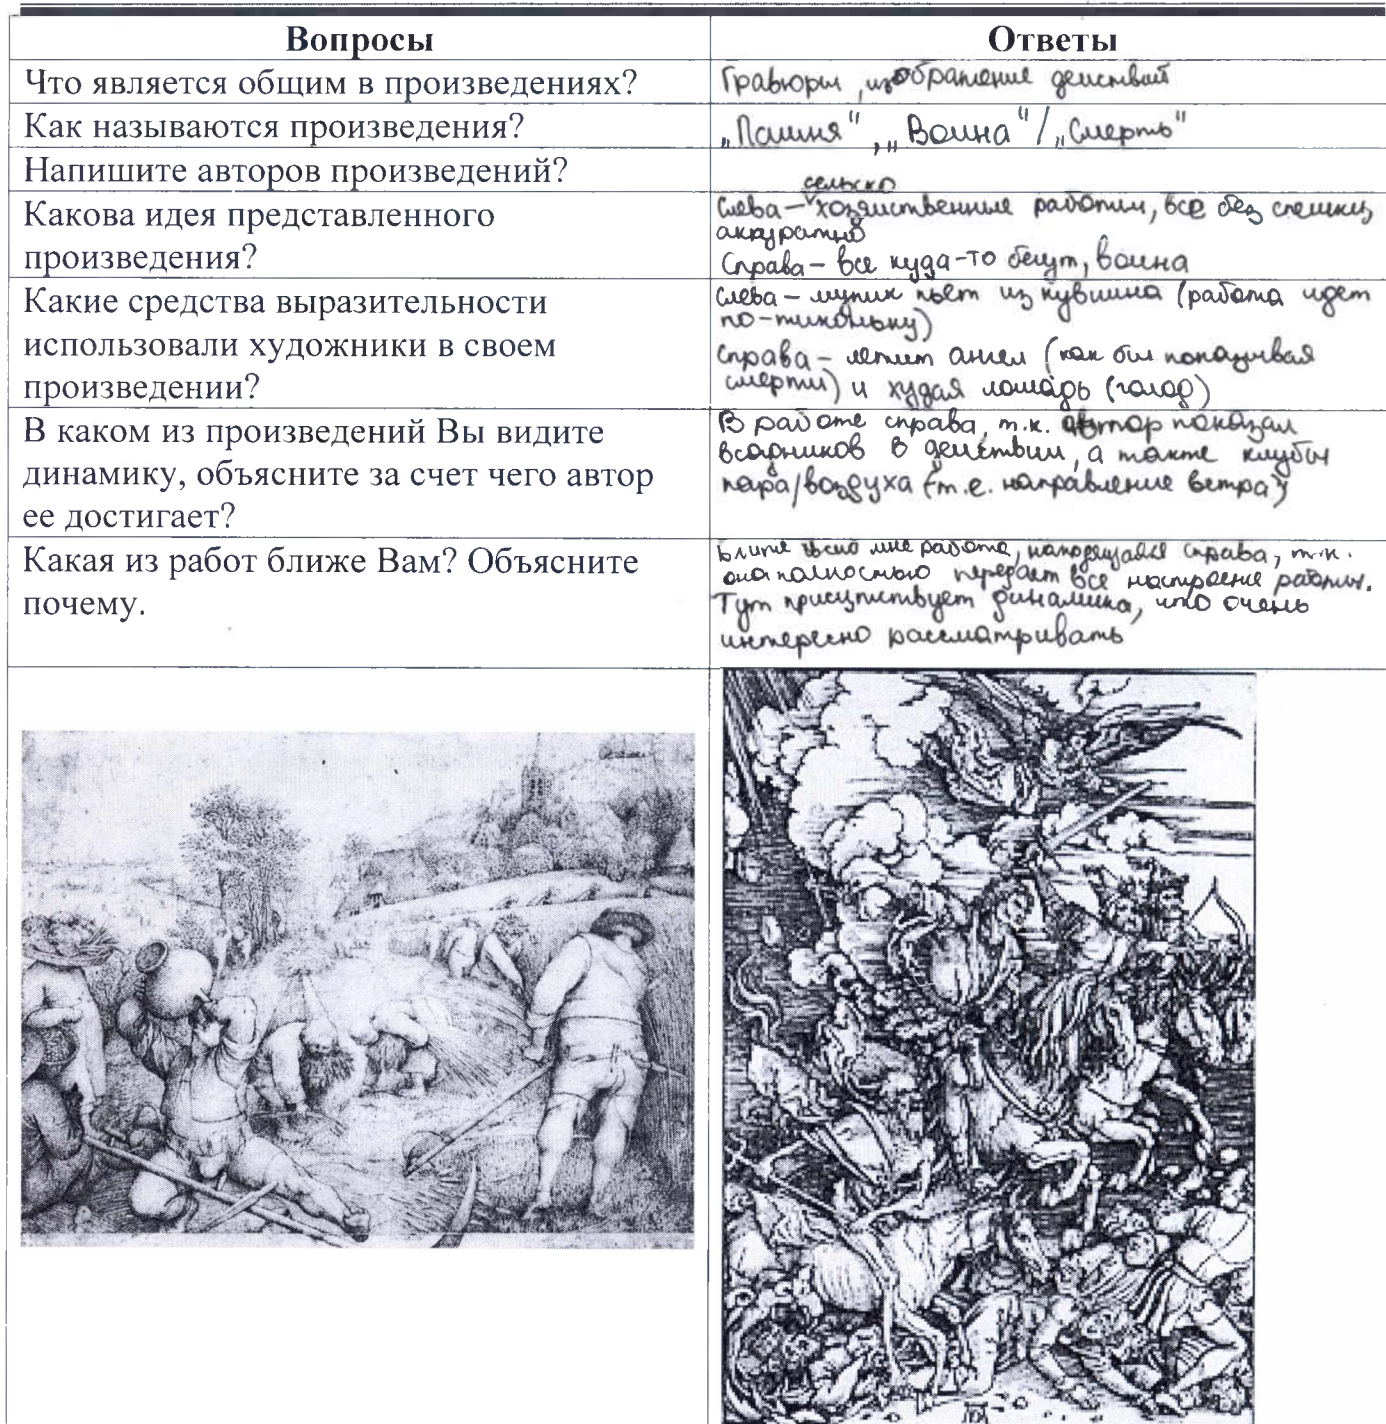 Вопросы
Ответы
Что является общим в произведениях?
Гравюры, изображение действий
Как называются произведения?
„Пашня", „Война" / „Смерть"
Напишите авторов произведений?
Какова идея представленного
произведения?
сельско
Слева – хозяйственные работы, все без спешки,
аккуратно
Справа – все куда-то бегут, война
Какие средства выразительности
использовали художники в своем
произведении?
Слева – мужик пьет из кувшина (работа идет
по-тихоньку)
Справа – летит ангел (как бы показывая
смерть) и худая лошадь (голод)
В каком из произведений Вы видите
динамику, объясните за счет чего автор
ее достигает?
В работе справа, т.к. автор показал
всадников в действии, а также клубы
пара/воздуха (т.е. направление ветра)
Какая из работ ближе Вам? Объясните
почему.
Ближе всего мне работа, находящаяся справа, т.к.
она полностью передает все настроение работы.
Тут присутствует динамика, что очень
интересно рассматривать
AD